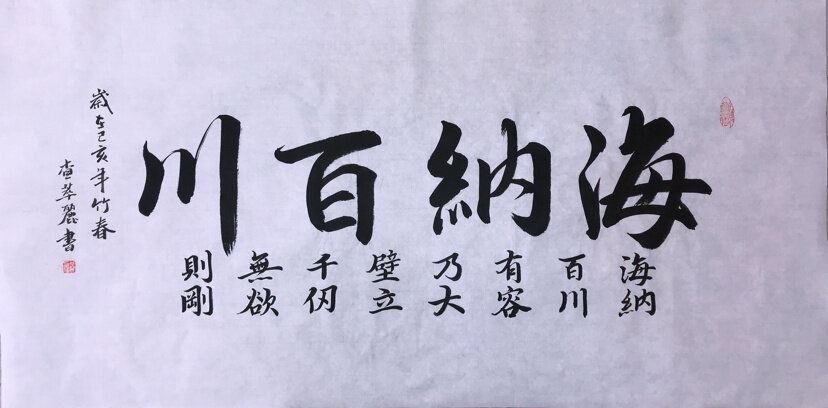 海納百川
海納
百川
有容
乃大
壁立
千仞
無欲
則剛
歲在己亥年竹春
查萃麗書